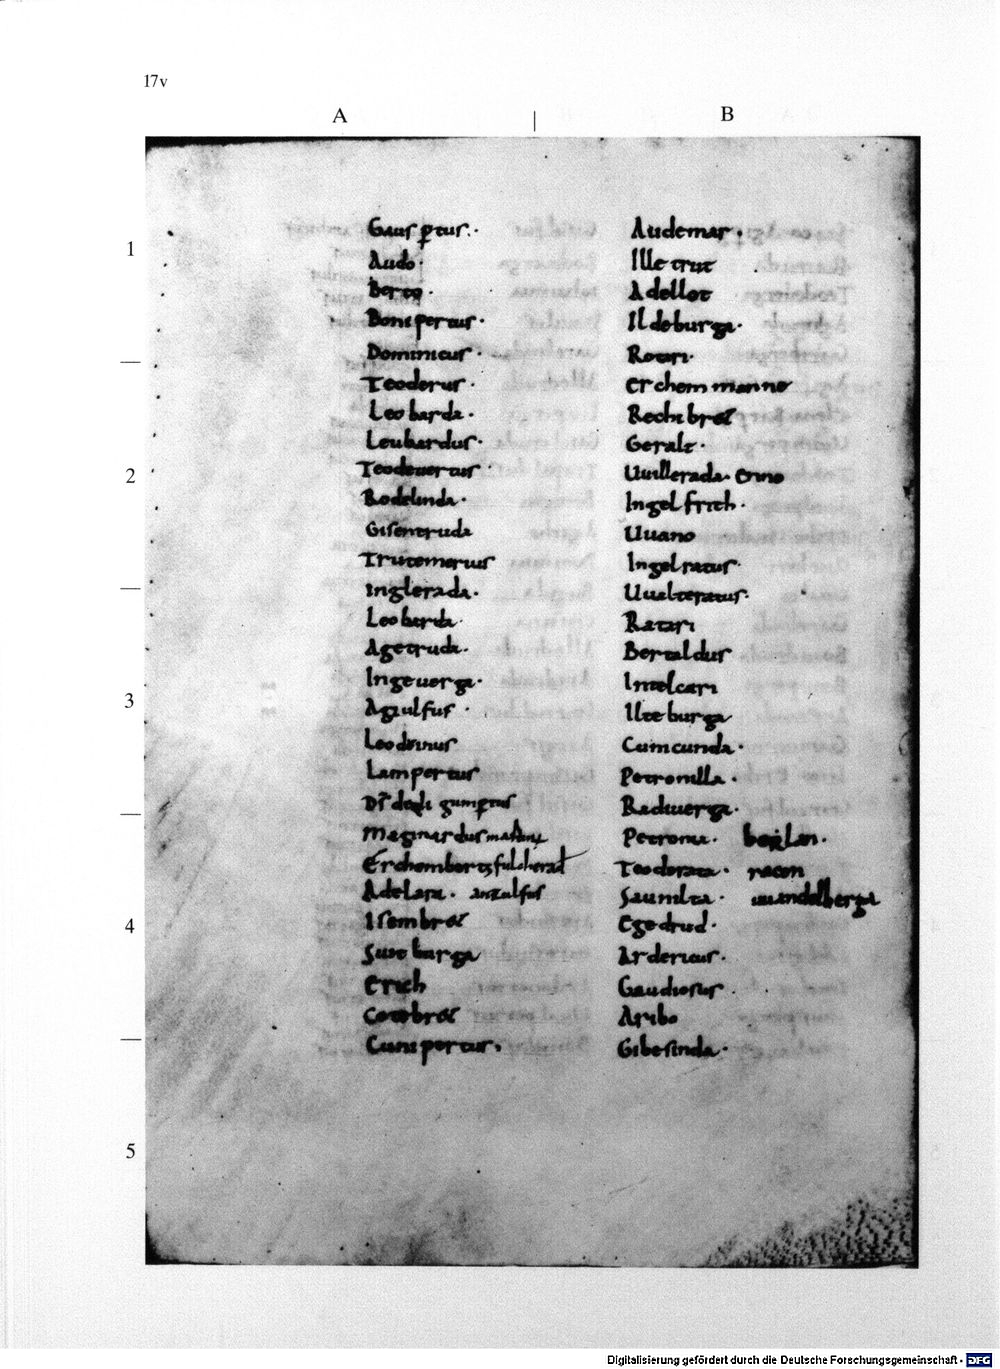 17v
A
B
1
2
3
4
5
Gausptus.
Audo.
Berto.
Bonipertus.
Dominicus.
Teoderus.
Leobarda.
Leubardus.
Teodeuertus
Rodelinda.
Gisentruda
Trutemarius
Inglerada.
Leobarda.
Agetruda.
Ingeuerga.
Agiulfus.
Leodrinus
Lampertus
gumptus
Maginardus
Erchembert fulcherad
Adelara. anzulfus
Isembret
Suteburga
Erich
Cotebret
Cunipertus.
Audemar.
Illetrut
Adellot
Ildeburga.
Rotari.
Erchemmanno
Rechibret
Geralt.
Uuillerada. Onno
Ingelfrith.
Uuano
Ingelratus.
Uualteratus.
Ratari
Bertaldus
Intelcari
Ilteburga
Cumcunda.
Petronilla.
Raduuerga.
Petronia.
Teodorata. racon
Saunilta. uuandelberga
Egedrud.
Ardericus.
Gaudiosus.
Aribo
Gibesinda.
Digitalisierung gefördert durch die Deutsche Forschungsgemeinschaft - DFG